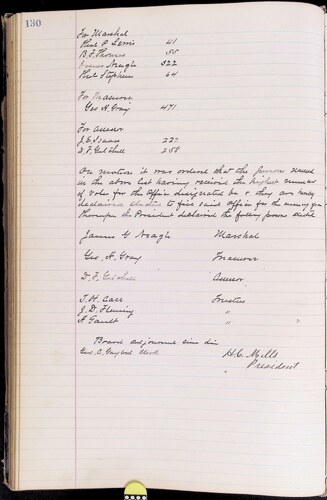 130
For Marshal
Phil P. Lewis 41
B. F. Thomas 55
James Neagle 322
Phil Stephens 64
For Treasurer
Geo A. Gray 471
For Assessor
J. E. Isaacs
D. F. Gutshall 258
On motion it was ordered that the persons named
in the above list having received the highest number
of votes for the office designated be & they are hereby
declared elected to fill said office for the ensuing year
thereupon the President declared the following persons elected
James G Neagle Marshal
Geo. A. Gray Treasurer
D. F. Gutshall Assessor
T. H. Carr Trustee
J. D. Fleming "
A Gault "
Board adjourned sine die
Geo. C. Clerk H. C. Mills
President